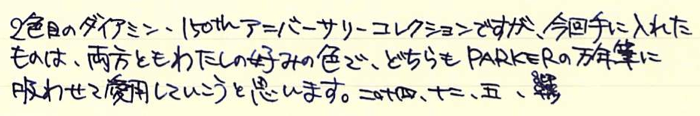 2色目のダイアミン・150thアニバーサリーコレクションですが、今回手に入れた
ものは、両方ともわたしの好みの色で、どちらもPARKERの万年筆に
吸わせて愛用していこうと思います。二〇十四、十二、五、